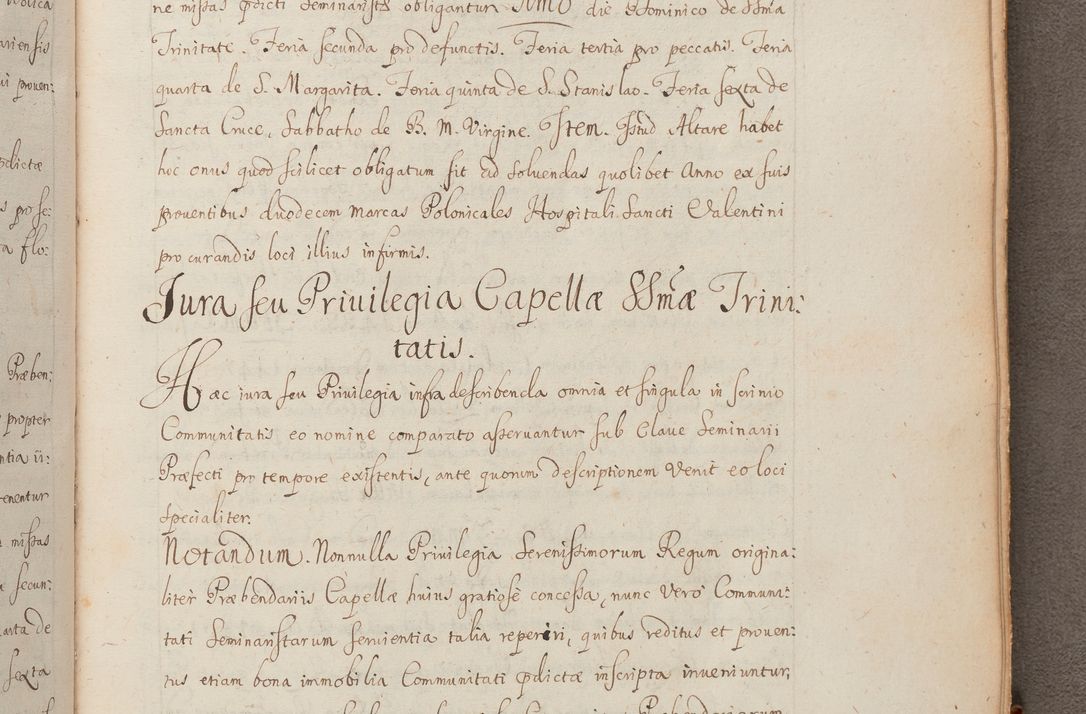 ne missas pdicti Seminaristæ obligantur IMO die Dominico de SSma
Trinitate. Feria secunda pro defunctis. Feria tertia pro peccatis. Feria
quarta de S. Margarita. Feria quinta de S. Stanislao. Feria sexta de
Sancta Cruce, Sabbatho de B. M. Virgine. Item. Istud Altare habet
hoc onus quod scilicet obligatum sit ad solvendas quolibet Anno ex suis
proventibus duodecem marcas Polonicales Hospitali Sancti Valentini
pro curandis loci illius infirmis.
Jura seu Privilegia Capellæ SSmæ Trini:
tatis.
Hæc iura seu Privilegia infra describenda omnia et singula in scrinio
Communitatis eo nomine comparato asservantur sub Clave Seminarii
Præfecti pro tempore existentis, ante quorum descriptionem venit eo loci
specialiter.
Notandum. Nonnulla Privilegia Serenissimorum Regum origina:
liter Præbendariis Capellæ huius gratiosè concessa, nunc verò Communi:
tati Seminaristarum servientia talia reperiri, quibus reditus et proven:
tus etiam bona immobilia Communitati pdictæ inscripta inveniuntur,
ariensis
ui proven:
pdictæ
s pro se:
a flo:
Præben:
propter
ntia ii:
tenentur
missas
secun:
arta de
sexta